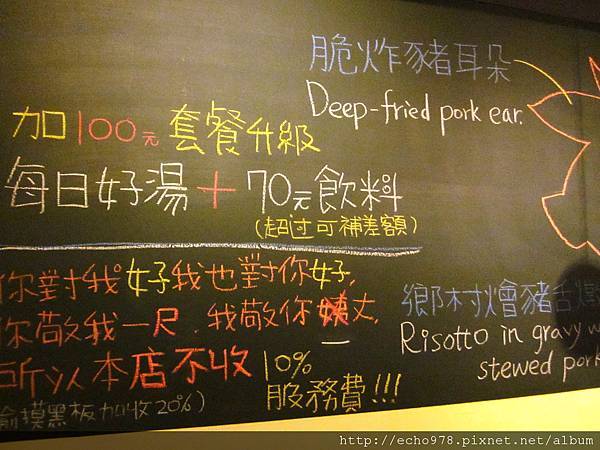 脆炸豬耳朵
Deep-fried pork ear.
加100元套餐升級
每日好湯+70元飲料
(超过可補差額)
你對我好我也對你好,
你敬我一尺.我敬你姨丈,
所以本店不收10%
服務費!!!
偷摸黑板加收20%)
鄉村燴豬舌燉
Risotto in gravy w
stewed pork
http://echo978.pixnet.net/album